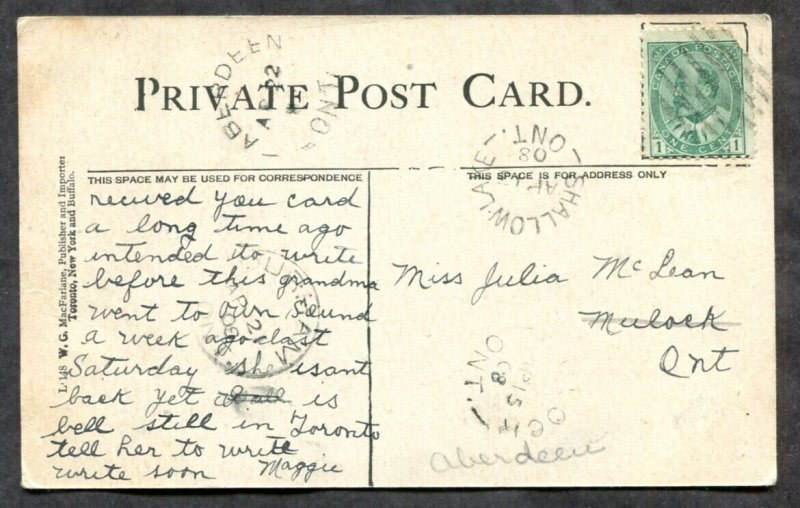 PRIVATE POST CARD.
ABERDEEN
ONT.
CANADA POSTAGE
1 ONE CENT 1
SHALLOW-LAKE
08
ONT.
THIS SPACE MAY BE USED FOR CORRESPONDENCE
THIS SPACE IS FOR ADDRESS ONLY
L-148 W. G. MacFarlane, Publisher and Importer
Toronto, New York and Buffalo.
recived you card
a long time ago
intended to write
before this grandma
went to Own Sound
a week ago last
Saturday she isant
back yet is
bell still in Toronto
tell her to write
write soon Maggie
DURHAM
Miss Julia McLean
Mulock
Ont
ONT.
08
Aberdeen